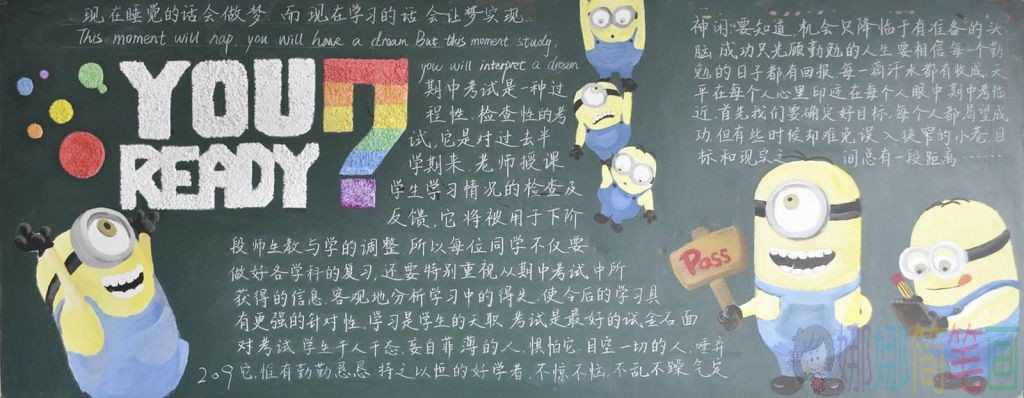 现在睡觉的话会做梦.而现在学习的话会让梦实现.
This moment will nap, you will have a dream. But this moment study,
you will interpret a dream
YOU
READY?
期中考试是一种过
程性.检查性的考
试,它是对过去半
学期来.老师授课
学生学习情况的检查及
反馈,它将被用于下阶
段师生教与学的调整.所以每位同学不仅要
做好各学科的复习,还要特别重视从期中考试中所
获得的信息.客观地分析学习中的得失.使今后的学习具
有更强的针对性.学习是学生的天职.考试是最好的试金石面
对考试.学生千人千态,妄自菲薄的人.惧怕它.目空一切的人.唾弃
209 它,惟有勤勤恳恳 持之以恒的好学者.不惊不怯.不乱不躁气定
神闲.要知道.机会只降临于有准备的头
脑,成功只光顾勤勉的人生要相信每一个勤
勉的日子都有回报.每一滴汗水都有收成.天
平在每个人心里印迹在每个人眼中期中考临
近.首先我们要确定好目标.每个人都渴望成
功.但有些时候却难免误入狭窄的小巷.目
标和现实之 间总有一段距离……
Pass
娜娜简笔画